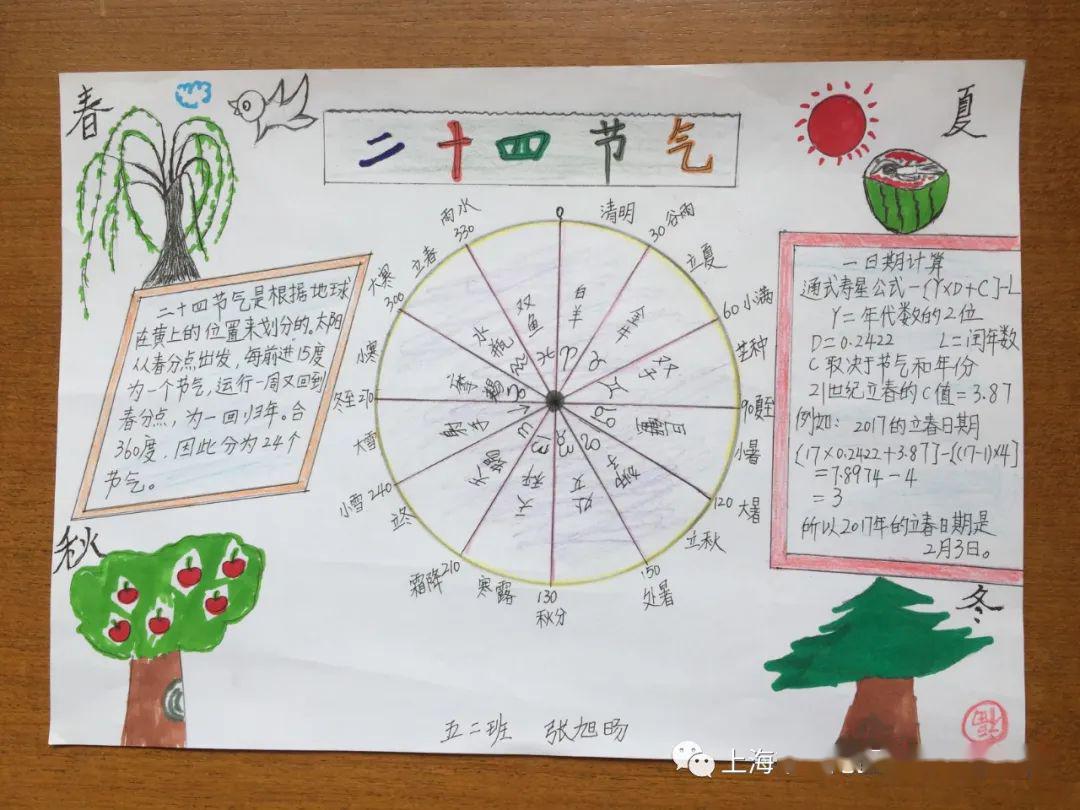 春
二十四节气
夏
0
清明
30 谷雨
立夏
60 小满
90 夏至
小暑
120 大暑
立秋
150
处暑
130
秋分
寒露
霜降 210
立冬
小雪 240
大雪
冬至 270
小寒
大寒
300
立春
雨水
330
白羊
双子
巨蟹
处女
天秤
射手
水瓶
双鱼
二十四节气是根据地球
在黄上的位置来划分的。太阳
从春分点出发，每前进15度
为一个节气，运行一周又回到
春分点，为一回归年。合
360度，因此分为24个
节气。
一日期计算
通式寿星公式-[Y×D+C]-L
Y=年代数的2位
D=0.2422 L=闰年数
C取决于节气和年份
21世纪立春的C值=3.87
例如：2017的立春日期
[17×0.2422+3.87]-[(17-1)×4]
=7.8974-4
=3
所以2017年的立春日期是
2月3日。
秋
冬
五二班 张旭旸
福
上海